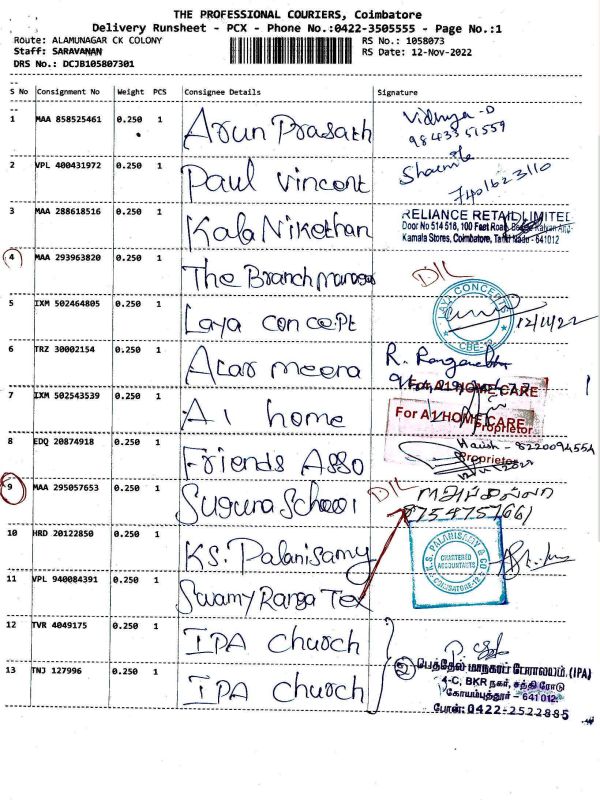 THE PROFESSIONAL COURIERS, Coimbatore
Delivery Runsheet - PCX - Phone No.:0422-3505555 - Page No.:1
Route: ALAMUNAGAR CK COLONY RS No.: 1058073
Staff: SARAVANAN RS Date: 12-Nov-2022
DRS No.: DCJB105807301
S No Consignment No Weight PCS Consignee Details Signature
1 MAA 858525461 0.250 1 Arun Prasath Vidhya-D
9843351559
2 VPL 400431972 0.250 1 Paul Vincent
7401623110
3 MAA 288618516 0.250 1 Kala Nikethan RELIANCE RETAIL LIMITED
Door No 514 516, 100 Feet Road,
Kamala Stores, Coimbatore, Tamil Nadu - 641012
4 MAA 293963820 0.250 1 The Branch manager D/L
5 IXM 502464805 0.250 1 Laya concept LAYA CONCEPTS
CBE-12
12/11/22
6 TRZ 30002154 0.250 1 meera R.
7 IXM 502543539 0.250 1 A1 home For A1 HOME CARE
For A1 HOME CARE
Proprietor
8 EDQ 20874918 0.250 1 Friends Asso Harish - 8220094554
Proprietor
9 MAA 295057653 0.250 1 Suguna School D/L
8754757661
10 HRD 20122850 0.250 1 KS. Palanisamy K.S. PALANISAMY & CO
CHARTERED
ACCOUNTANTS
COIMBATORE-12
11 VPL 940084391 0.250 1 Swamy Ranga Tex
12 TVR 4049175 0.250 1 IPA Church
13 TNJ 127996 0.250 1 IPA Church 2 பெத்தேல் மாநகர பேராலயம். (IPA)
4-C, BKR நகர், சத்தி ரோடு
கோயம்புத்தூர் - 641 012.
போன்: 0422-2522885